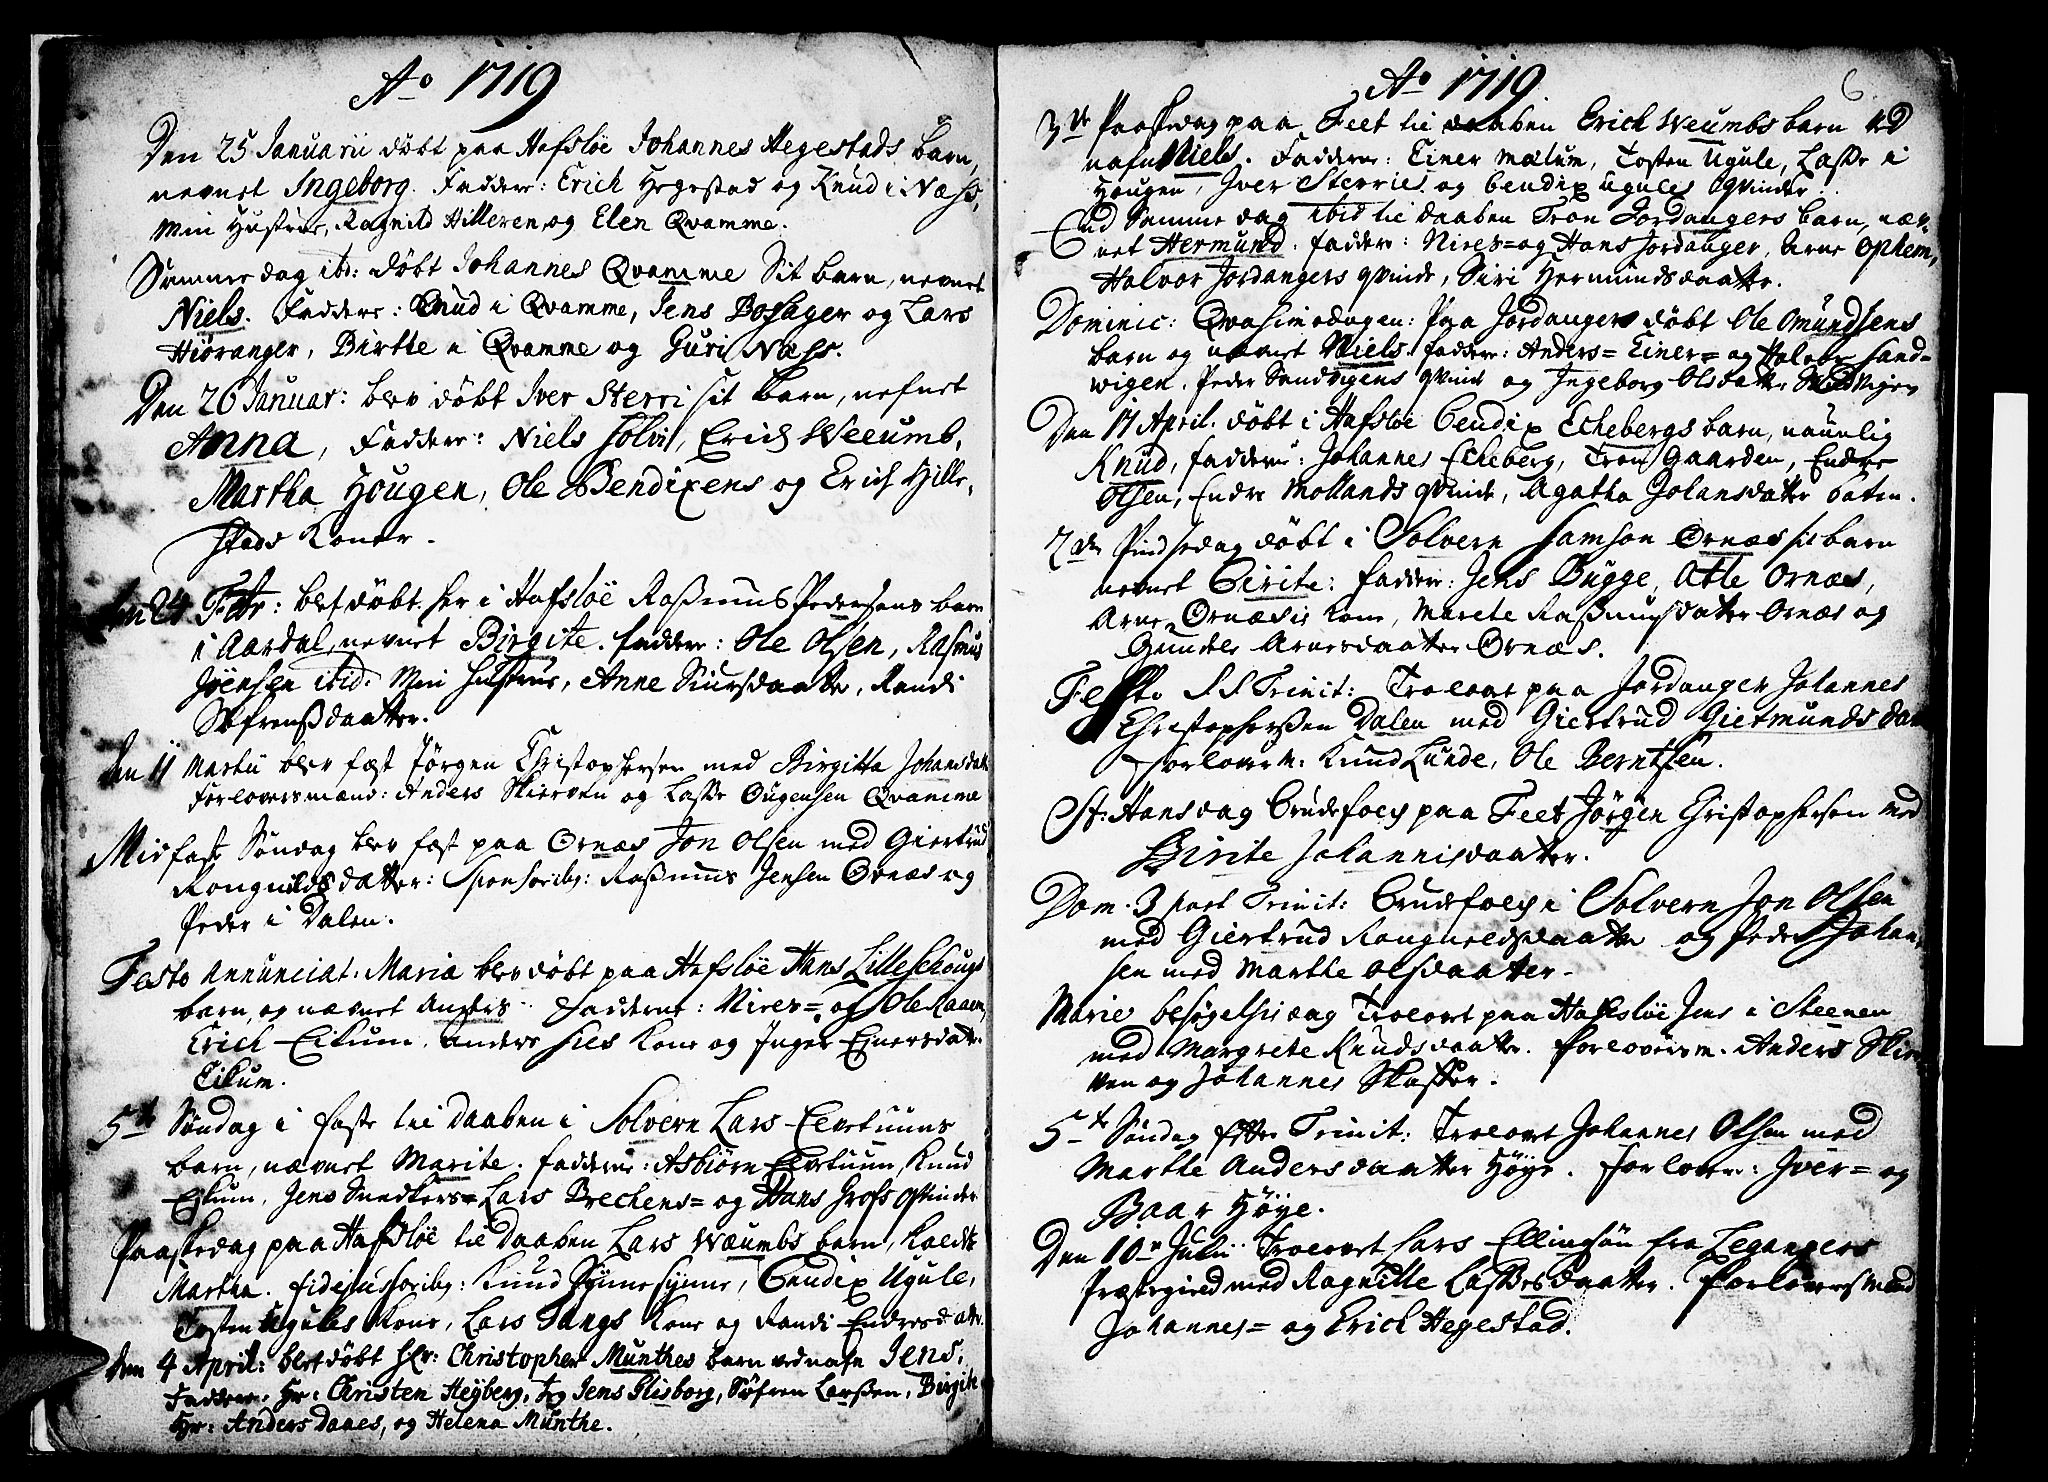 Ao 1719
Den 25 Januarii döbt paa Hafslöe Johannes Hegestads barn,
nevnet Ingeborg. Faddere: Erich Hegestad og Knud i Næss,
Min Hustrue, Ragnild Hilleren, og Elen Qvamme.
Samme dag ibd: döbt Johannes Qvamme Sit barn, nevnet
Niels. Faddere: Cnud i Qvamme, Jens Bossager og Lars
Hiöranger, Birthe i Qvamme og Guri Næss.
Den 26 Januar: blev döbt Iver Sterri sit barn, nefnet
Anna, Faddere: Niels Solvi, Erich Weeumb,
Martha Hougen, Ole Bendixens og Erich Hille-
stads Koner.
den 24 Febr: blef döbt her i Hafslöe Rassmus Pedersens barn
i Aardal, nevnet Birgite. Faddere: Ole Olsen, Rasmus
Jöensen ibid. Min Hustrue, Anne Siursdaatter, Randi
Söfrenssdaatter.
den 11 Martii blev fæst Jörgen Christophersen med Birgitta Johansdatt
Forloversmænd: Anders Skierven og Lasse Ougensen Qvamme
Midfaste Söndag blev fæst paa Ornæs Jon Olsen med Giertrud
Rongnildsdatter: Sponsorib9: Rassmus Jensen Ornæs og
Peder i Dalen.
Festo Annunciat. Mariæ blev döbt paa Hafslöe Hans Lilleschougs
barn, og nævnet Anders. Faddere: Niels= og Ole Raaum,
Erich Eikum. Anders Kone og Inger Ejnersdatt.
Eikum.
5te Söndag i faste til daaben i Solvern Lars Elvetuuns
barn, nævnet Marite. Faddere: Asbiörn Elvetuun, Knud
Eikum, Jens Snedkers= Lars Brechens= og Hans Grofs qvinder
Paaskedag paa Hafslöe til Daaben Lars Wæumbs barn, Kaldt
Martha. Fidejussorib9: Knud Synnesynne, Bendix Ugule,
Tosten Ugules Kone, Lars Tangs Kone og Randi Endresdatt.
den 4 April: blef döbt Hr: Christopher Munthes barn ved nafn Jens.
Faddere. Hr: Christen Heyberg, Jens Slisborg, Söfren Larssen, Birgite
Hr: Anders Danes, og Helena Munthe.
Ao 1719
6
3de Paaskedag paa Feet til daaben Erich Weumbs barn ved
nafn Niels. Faddere: Einer Mælum, Tosten Ugule, Lasse i
Hougen, Iver Sterries og Bendix Ugules Qvinder.
End Samme dag ibid til daaben Tron Jordangers barn, næv-
net Hermund. Faddere: Nires= og Hans Jordanger, Arne Ophem,
Halvor Jordangers qvinde, Siri Hermundsdaatter.
Dominic: Qvasimodogen: Paa Jordanger döbt Ole Omundsens
barn og nævnet Niels. Faddere: Anders= Einer= og Halvor Sand-
wigen. Peder Sandvigens qvinde og Ingeborg Olsdatter Sandvigen
Den 17 April. döbt i Hafsloe Bendix Echebergs barn, naunlig
Knud, Faddere: Johannes Echeberg, Tron Gaarden, Endre
Olsen, Endre Mollands qvinde, Agatha Johansdatter
2den Pindsedag döbt i Solvern Samson Ornæs sit barn
nevnet Birite: Faddere: Jens Bugge, Atle Ornæs,
Arne Ornæsis Kone, Marete Rassmusdatter Ornæs og
Gundele Arnesdaatter Ornæs.
Festo S S Trinit: Troloret paa Jordanger Johannes
Christopherssen Dalen med Giertrud Giermundsdatt
Forloverm: Knud Lunde, Ole Berntsen.
St: Hansdag Brudefolch paa Feet Jörgen Christophersen med
Birite Johannisdaatter.
Dom. 3 post Trinit: Brudefolch i Solvern Jon Olsen
med Giertrud Rongneldsdaatter og Peder Johan-
sen med Marthe Olsdaatter.
Marie besögelsis dag Troloret paa Hafslöe Jens i Steenen
med Margrete Knudsdaatter. Forloverm. Anders Skier-
ven og Johannes Skasser.
5te Söndag efter Trinit: Troloret Johannes Olsen med
Marthe Andersdaatter Höye. Forloverm: Iver= og
Baar Höye.
Den 10n Julii Troloret Lars Ellingsön fra Legangers
Præstegield med Ragnille Lassesdaatter. Forloversmænd
Johannes= og Erich Hegestad.